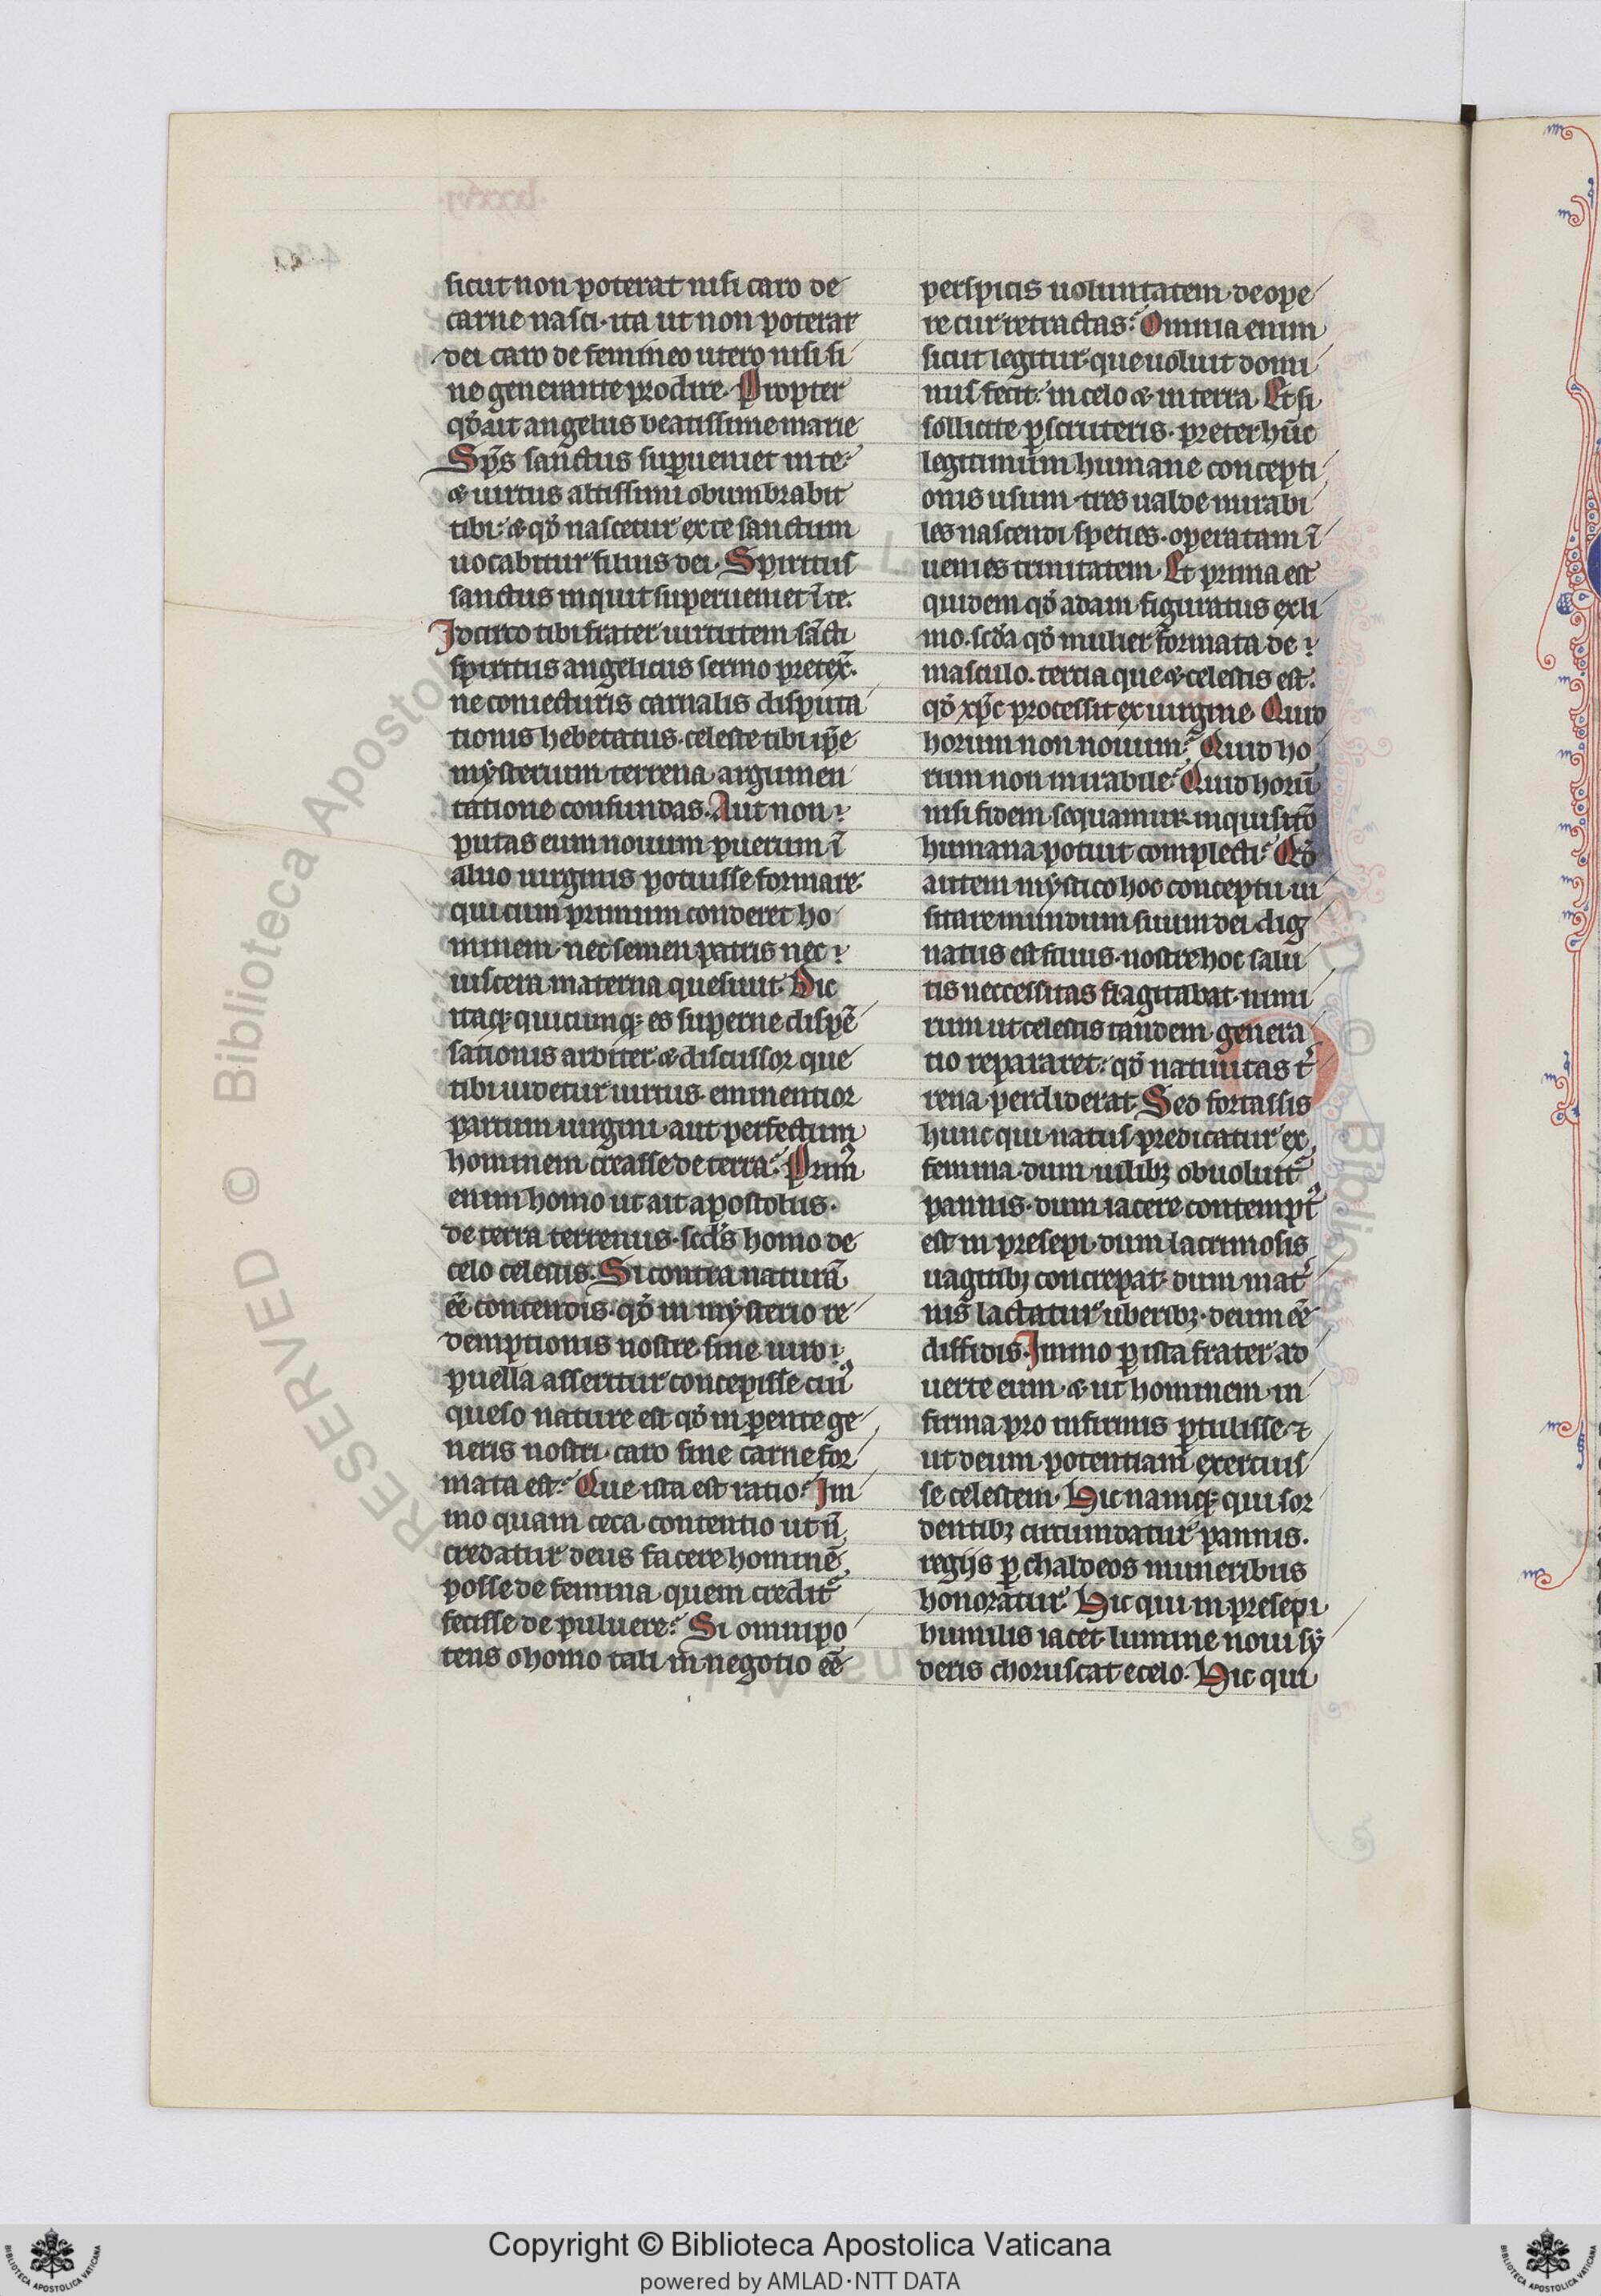 sicut non poterat nisi caro de
carne nasci· ita ut non poterat
dei caro de femineo utero nisi si
ne generante prodire. Propter
qð ait angelus beatissime marie
Sp̄s sanctus suꝑueniet in te·
& uirtus altissimi obumbrabit
tibi: & qð nascetur ex te sanctum
uocabitur filius dei. Spiritus
sanctus inquit superueniet ī te.
Idcirco tibi frater uirtutem sācti
spiritus angelicus sermo pretex̄·
ne coniecturis carnalis disputa
tionis hebetatus· celeste tibi ip̄e
mẏsterium terrena argumen
tatione confundas. Aut non
putas eum nouum puerum ī
aluo uirginis potuisse formare·
qui cum primum conderet ho
minem· nec semen patris nec
uiscera materna quesiuit. Dic
itaqꝫ quicumqꝫ es superne dispē
sationis arbiter & discussor que
tibi uidetur uirtus eminentior
partum uirgini· aut perfectum
hominem creasse de terra? Prim᷒
enim homo ut ait apostolus·
de terra terrenus· scd᷒s homo de
celo celestis. Si contra naturā
eē contendis· qð in mẏsterio re
demptionis nostre sine uiro
puella asseritur concepisse cui᷒
queso nature est qð in ꝑente ge
neris nostri· caro sine carne for
mata est? Que ista est ratio? Im
mo quam ceca contentio ut n̄
credatur deus facere hominē
posse de femina quem credit᷑
fecisse de puluere? Si omnipo
tens o homo tali in negotio eē
perspicis uoluntatem· de ope
re cur retractas? Omnia enim
sicut legitur· que uoluit domi
nus fecit: in celo & in terra. Et si
sollicite ꝑscruteris· preter hūc
legitimum humane concepti
onis usum· tres ualde mirabi
les nascendi speties· operatam ī
uenies trinitatem. Et prima est
quidem qð adam figuratus ex li
mo· scd̄a qð mulier formata de
masculo· tertia que & celestis est:
qð xp̄c processit ex uirgine. Quid
horum non nouum? Quid ho
rum non mirabile? Quid horū
nisi fidem sequamur· inquisitō
humana potuit complecti? Qð
autem mẏstico hoc conceptu ui
sitare mundum suum dei dig
natus est filius· nostre hoc salu
tis neccessitas flagitabat· nimi
rum ut celestis tandem genera
tio repararet: qð natiuitas t᷒
rena perdiderat. Sed fortassis
hunc qui natus predicatur ex
femina· dum uilibꝫ obuoluit᷑
pannis· dum iacere contempt᷒
est in presepi· dum lacrimosis
uagitibꝫ concrepat· dum mat᷒
nis lactatur uberibꝫ· deum eē
diffidis. Immo ꝑ ista frater ad
uerte eum & ut hominem in
firma pro infirmis ꝑtulisse· ⁊
ut deum potentiam exercuis
se celestem. Hic namqꝫ qui sor
dentibꝫ circumdatur pannis·
regijs ꝑ chaldeos muneribus
honoratur. Hic qui in presepi
humilis iacet· lumine noui sẏ
deris choruscat e celo. Hic qui
RESERVED © Biblioteca Apostol
Copyright © Biblioteca Apostolica Vaticana
powered by AMLAD·NTT DATA